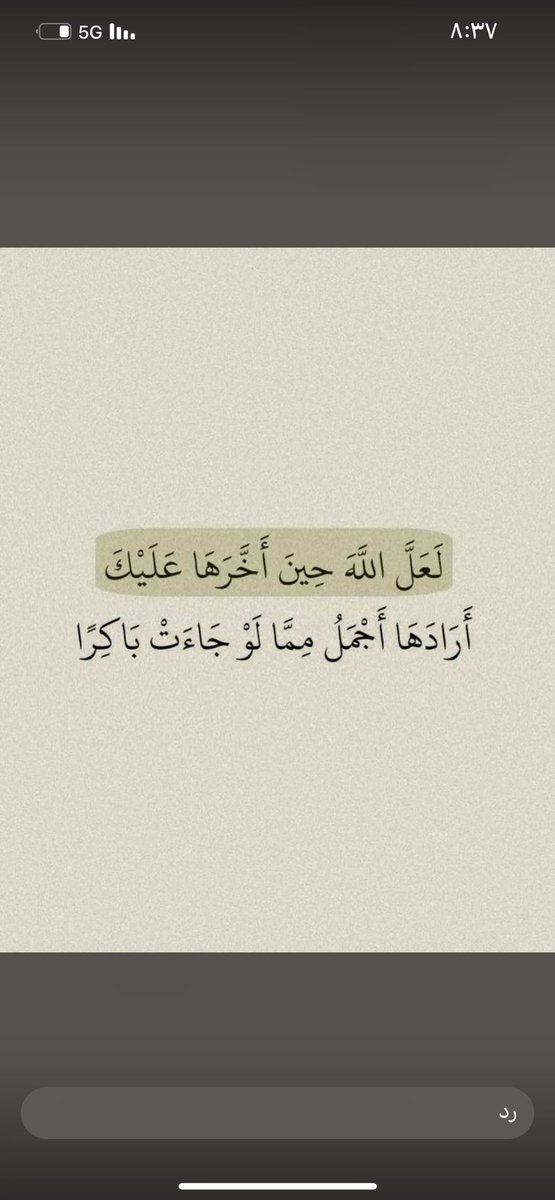 5G
٨:٣٧
لَعَلَّ اللَّهَ حِينَ أَخَّرَهَا عَلَيْكَ
أَرَادَهَا أَجْمَلُ مِمَّا لَوْ جَاءَتْ بَاكِرًا
رد